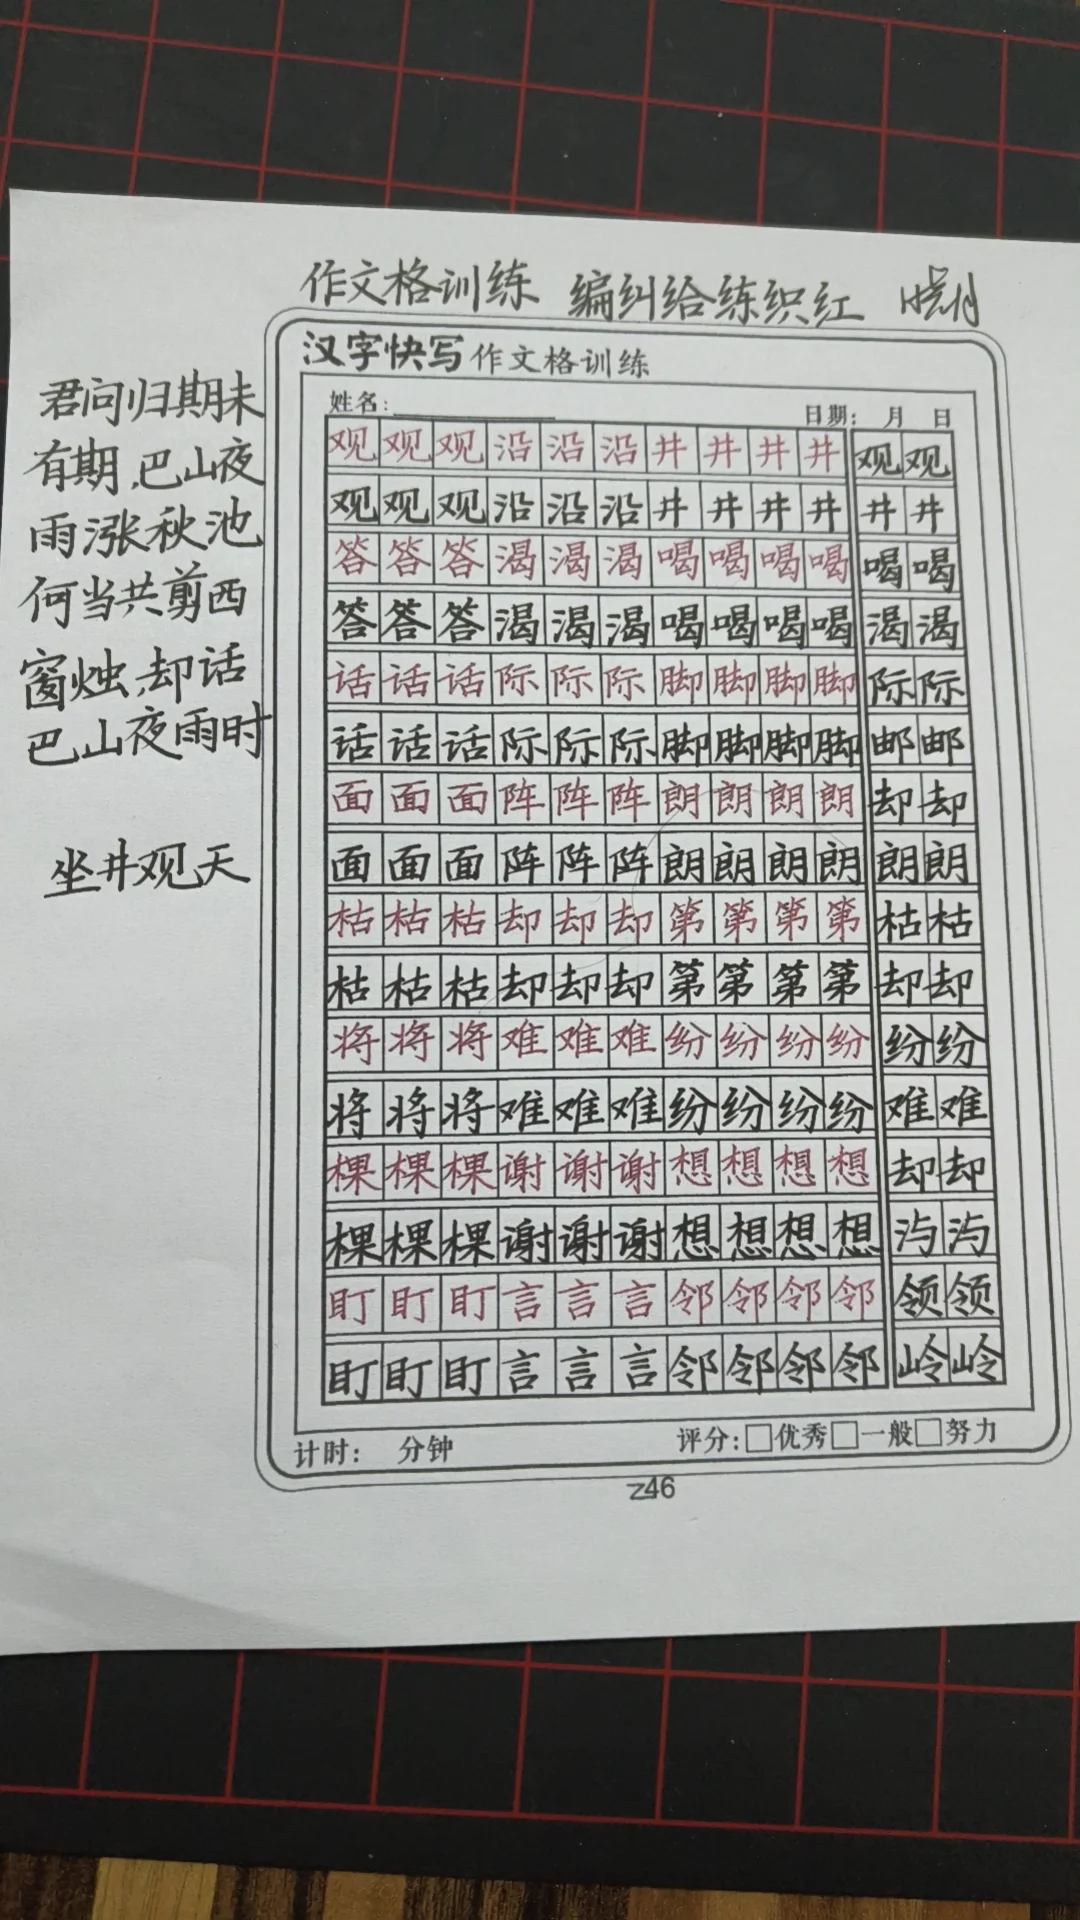 作文格训练 编纠给练织红
汉字快写作文格训练
姓名: 日期: 月 日
君问归期未
有期,巴山夜
雨涨秋池
何当共剪西
窗烛,却话
巴山夜雨时
坐井观天
观观观沿沿沿井井井井 观观
观观观沿沿沿井井井井 井井
答答答渴渴渴喝喝喝喝 喝喝
答答答渴渴渴喝喝喝喝 渴渴
话话话际际际脚脚脚脚 际际
话话话际际际脚脚脚脚 邮邮
面面面阵阵阵朗朗朗朗 却却
面面面阵阵阵朗朗朗朗 朗朗
枯枯枯却却却第第第第 枯枯
枯枯枯却却却第第第第 却却
将将将难难难纷纷纷纷 纷纷
将将将难难难纷纷纷纷 难难
棵棵棵谢谢谢想想想想 却却
棵棵棵谢谢谢想想想想
盯盯盯言言言邻邻邻邻 领领
盯盯盯言言言邻邻邻邻 岭岭
计时: 分钟 评分:□优秀□一般□努力
Z46